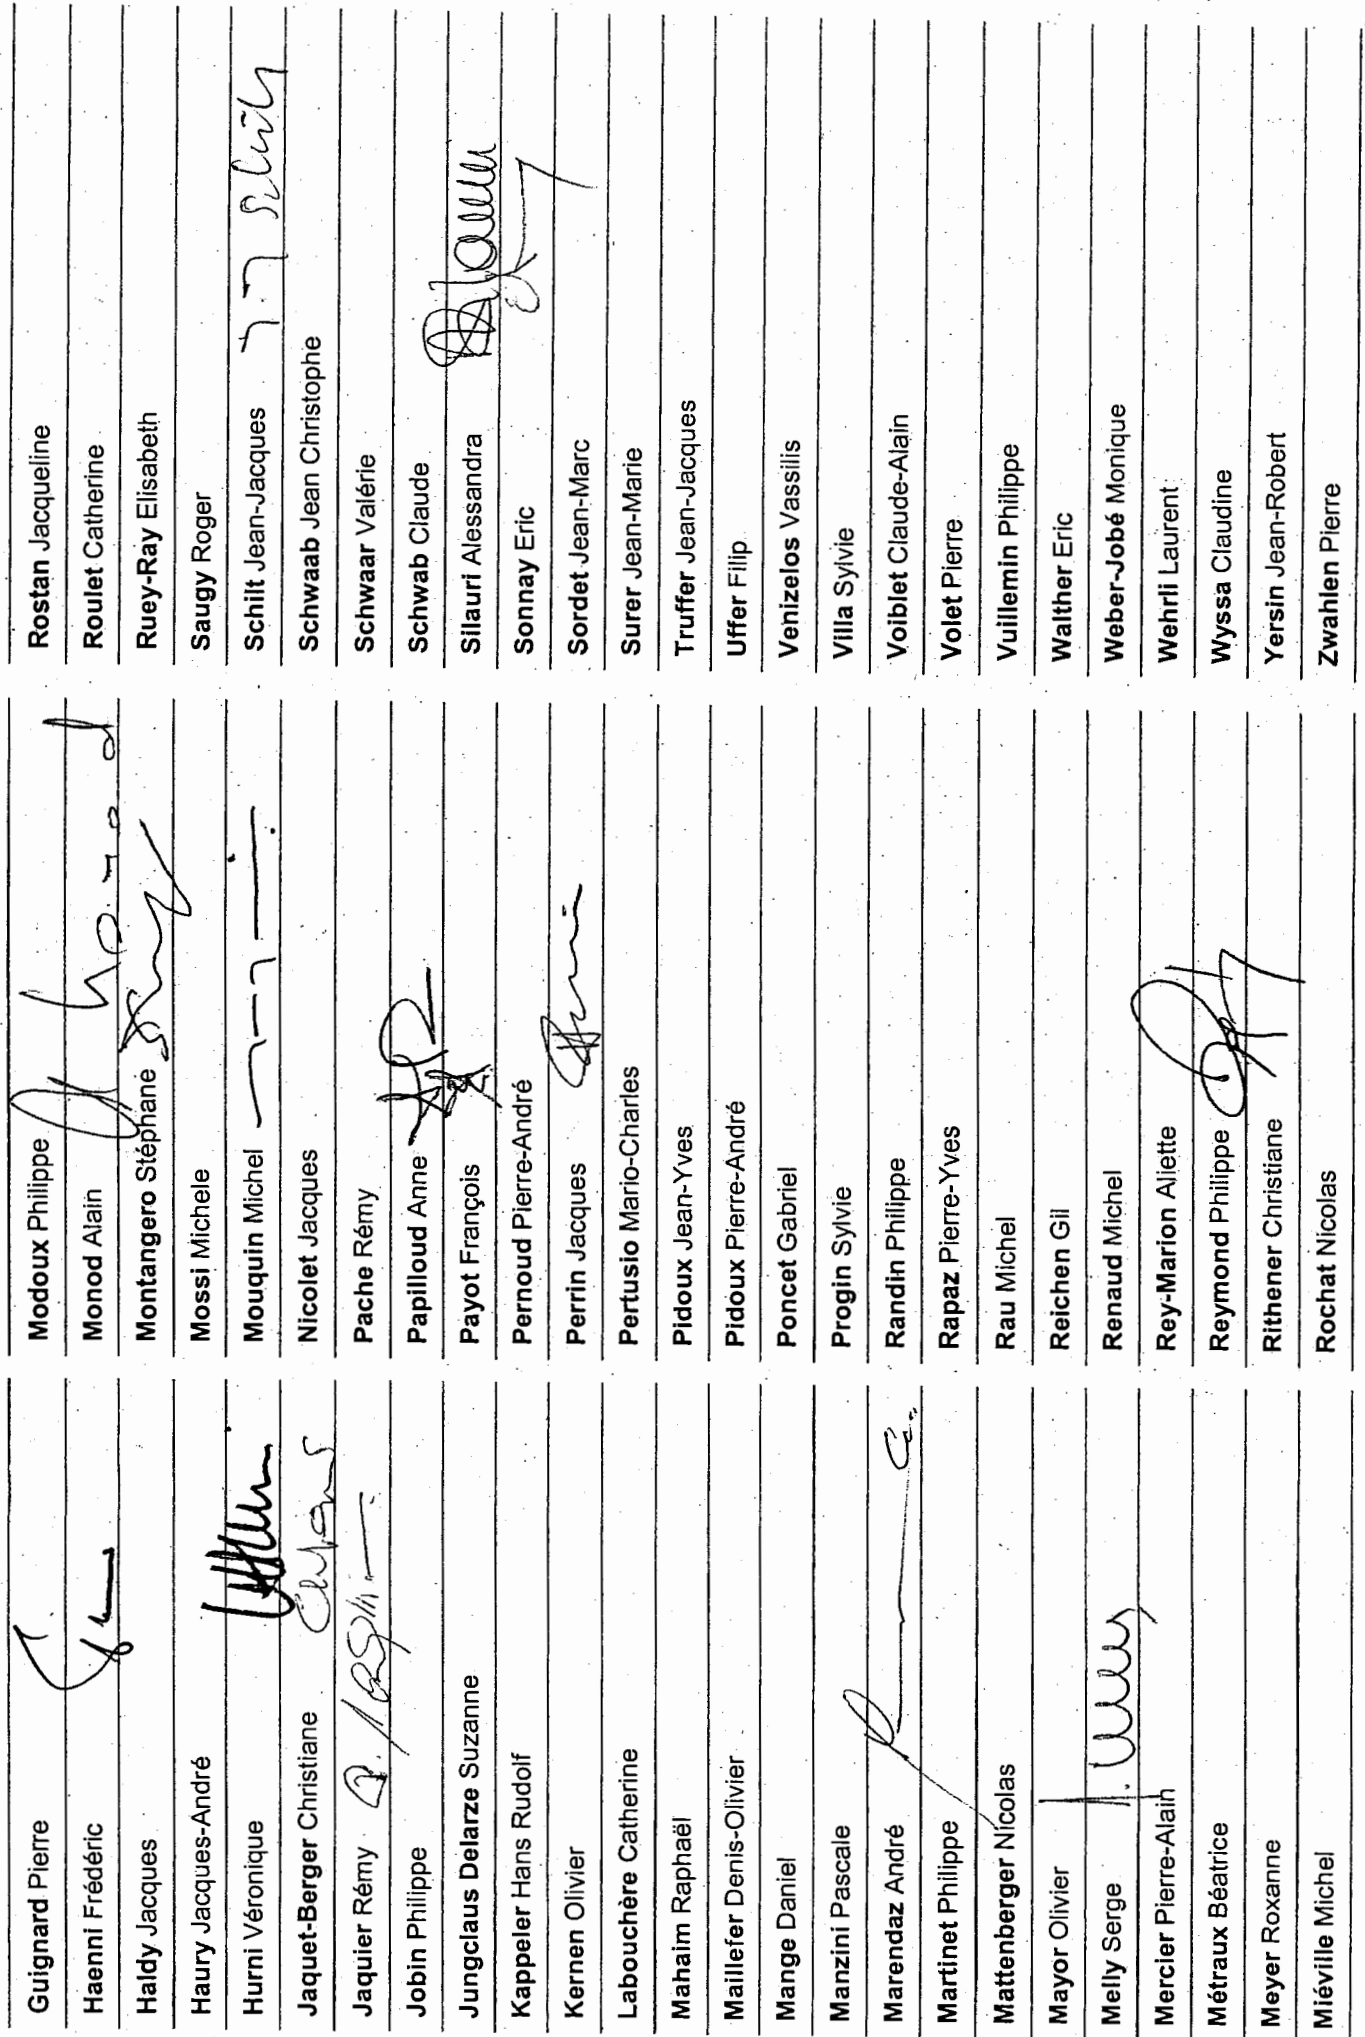 Guignard Pierre
Haenni Frédéric
Haldy Jacques
Haury Jacques-André
Hurni Véronique
Jaquet-Berger Christiane
Jaquier Rémy
Jobin Philippe
Jungclaus Delarze Suzanne
Kappeler Hans Rudolf
Kernen Olivier
Labouchère Catherine
Mahaim Raphaël
Maillefer Denis-Olivier
Mange Daniel
Manzini Pascale
Marendaz André
Martinet Philippe
Mattenberger Nicolas
Mayor Olivier
Melly Serge
Mercier Pierre-Alain
Métraux Béatrice
Meyer Roxanne
Miéville Michel
Modoux Philippe
Monod Alain
Montangero Stéphane
Mossi Michele
Mouquin Michel
Nicolet Jacques
Pache Rémy
Papilloud Anne
Payot François
Pernoud Pierre-André
Perrin Jacques
Pertusio Mario-Charles
Pidoux Jean-Yves
Pidoux Pierre-André
Poncet Gabriel
Progin Sylvie
Randin Philippe
Rapaz Pierre-Yves
Rau Michel
Reichen Gil
Renaud Michel
Rey-Marion Aliette
Reymond Philippe
Rithener Christiane
Rochat Nicolas
Rostan Jacqueline
Roulet Catherine
Ruey-Ray Elisabeth
Saugy Roger
Schilt Jean-Jacques
Schwaab Jean Christophe
Schwaar Valérie
Schwab Claude
Silauri Alessandra
Sonnay Eric
Sordet Jean-Marc
Surer Jean-Marie
Truffer Jean-Jacques
Uffer Filip
Venizelos Vassilis
Villa Sylvie
Voiblet Claude-Alain
Volet Pierre
Vuillemin Philippe
Walther Eric
Weber-Jobé Monique
Wehrli Laurent
Wyssa Claudine
Yersin Jean-Robert
Zwahlen Pierre